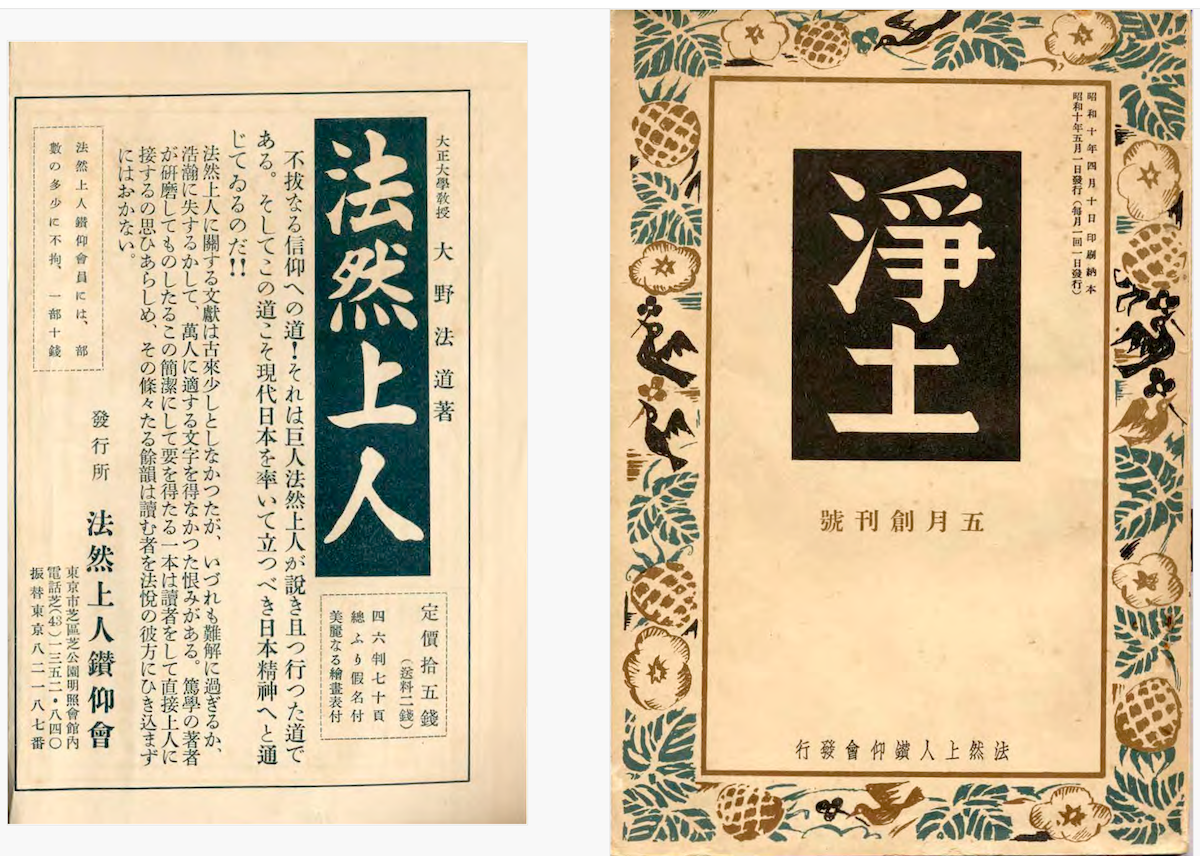 大正大學敎授 大野法道著
法然上人
不拔なる信仰への道！それは巨人法然上人が説き且つ行つた道で
ある。そしてこの道こそ現代日本を率いて立つべき日本精神へと通
じてゐるのだ!!
法然上人に關する文獻は古來少しとしなかつたが、いづれも難解に過ぎるか、
浩瀚に失するかして、萬人に適する文字を得なかつた恨みがある。篤學の著者
が硏磨してものしたるこの簡潔にして要を得たる一本は讀者をして直接上人に
接するの思ひあらしめ、その條々たる餘韻は讀む者を法悅の彼方にひき込まず
にはおかない。
定價拾五錢
（送料二錢）
四六判七十頁
總ふり假名付
美麗なる繪畫表付
法然上人鑽仰會員には、部
數の多少に不拘、一部十錢
發行所 法然上人鑽仰會
東京市芝區芝公園明照會館內
電話芝(43)一三五二・八四〇
振替東京八二一八七番
昭和十年四月十日印刷納本
昭和十年五月一日發行（每月一回一日發行）
淨土
五月創刊號
法然上人鑽仰會發行